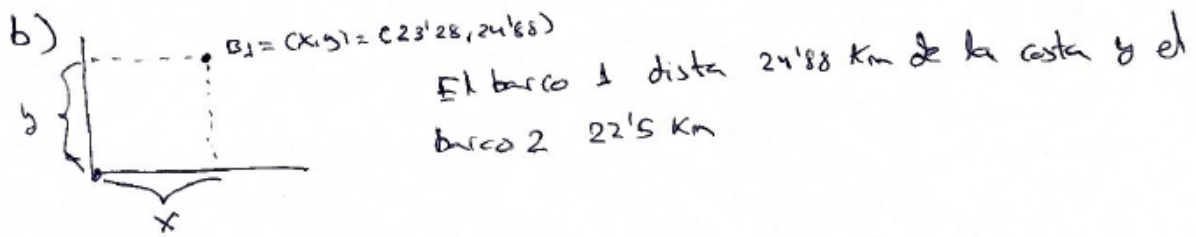 b)
B1 = (x,y) = (23'28, 24'88)
El barco 1 dista 24'88 Km de la costa y el
barco 2 22'5 Km
y
x